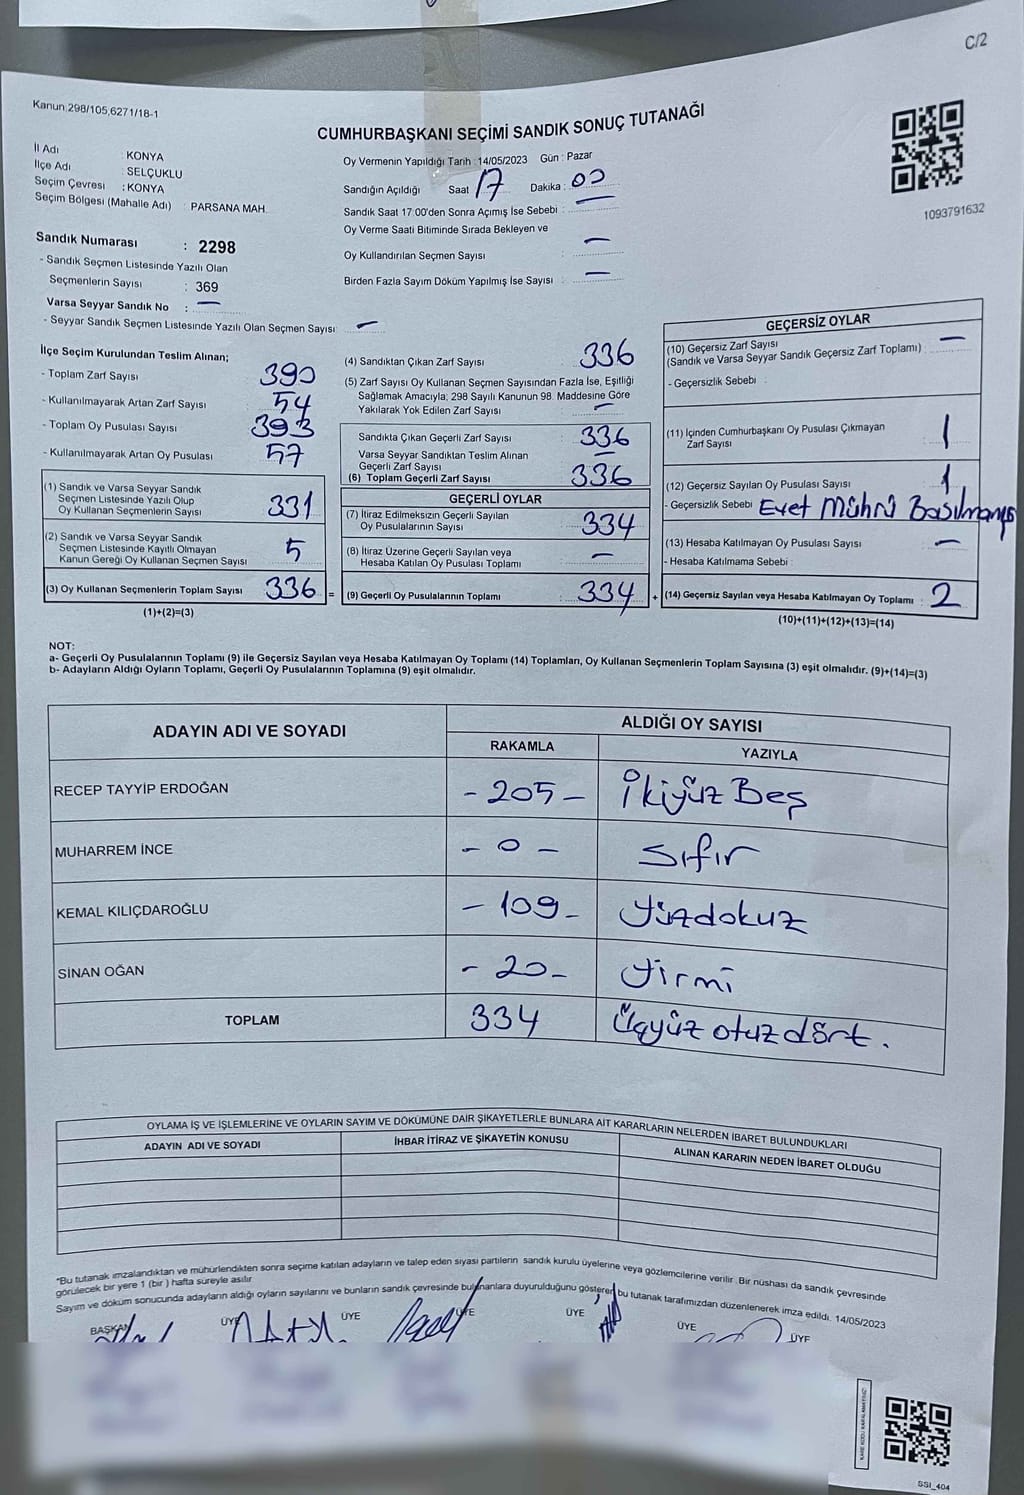 C/2
Kanun:298/105,6271/18-1
CUMHURBAŞKANI SEÇİMİ SANDIK SONUÇ TUTANAĞI
İl Adı : KONYA
İlçe Adı : SELÇUKLU
Seçim Çevresi : KONYA
Seçim Bölgesi (Mahalle Adı) : PARSANA MAH.
Oy Vermenin Yapıldığı Tarih : 14/05/2023 Gün : Pazar
Sandığın Açıldığı Saat 17 Dakika : 00
Sandık Saat 17:00'den Sonra Açımış İse Sebebi : —
Oy Verme Saati Bitiminde Sırada Bekleyen ve
Oy Kullandırılan Seçmen Sayısı : —
Birden Fazla Sayım Döküm Yapılmış İse Sayısı : —
1093791632
Sandık Numarası : 2298
- Sandık Seçmen Listesinde Yazılı Olan
Seçmenlerin Sayısı : 369
Varsa Seyyar Sandık No : —
- Seyyar Sandık Seçmen Listesinde Yazılı Olan Seçmen Sayısı : —
İlçe Seçim Kurulundan Teslim Alınan;
- Toplam Zarf Sayısı 390
- Kullanılmayarak Artan Zarf Sayısı 54
- Toplam Oy Pusulası Sayısı 393
- Kullanılmayarak Artan Oy Pusulası 57
(1) Sandık ve Varsa Seyyar Sandık
Seçmen Listesinde Yazılı Olup
Oy Kullanan Seçmenlerin Sayısı 331
(2) Sandık ve Varsa Seyyar Sandık
Seçmen Listesinde Kayıtlı Olmayan
Kanun Gereği Oy Kullanan Seçmen Sayısı 5
(3) Oy Kullanan Seçmenlerin Toplam Sayısı 336 =
(1)+(2)=(3)
(4) Sandıktan Çıkan Zarf Sayısı 336
(5) Zarf Sayısı Oy Kullanan Seçmen Sayısından Fazla İse, Eşitliği
Sağlamak Amacıyla; 298 Sayılı Kanunun 98. Maddesine Göre
Yakılarak Yok Edilen Zarf Sayısı : —
Sandıkta Çıkan Geçerli Zarf Sayısı : 336
Varsa Seyyar Sandıktan Teslim Alınan
Geçerli Zarf Sayısı : —
(6) Toplam Geçerli Zarf Sayısı 336
GEÇERLİ OYLAR
(7) İtiraz Edilmeksizin Geçerli Sayılan
Oy Pusulalarının Sayısı : 334
(8) İtiraz Üzerine Geçerli Sayılan veya
Hesaba Katılan Oy Pusulası Toplamı : —
(9) Geçerli Oy Pusulalarının Toplamı : 334 +
GEÇERSİZ OYLAR
(10) Geçersiz Zarf Sayısı
(Sandık ve Varsa Seyyar Sandık Geçersiz Zarf Toplamı) : —
- Geçersizlik Sebebi :
(11) İçinden Cumhurbaşkanı Oy Pusulası Çıkmayan
Zarf Sayısı 1
(12) Geçersiz Sayılan Oy Pusulası Sayısı 1
- Geçersizlik Sebebi Evet Mührü Basılmamış
(13) Hesaba Katılmayan Oy Pusulası Sayısı : —
- Hesaba Katılmama Sebebi :
(14) Geçersiz Sayılan veya Hesaba Katılmayan Oy Toplamı : 2
(10)+(11)+(12)+(13)=(14)
NOT:
a- Geçerli Oy Pusulalarının Toplamı (9) ile Geçersiz Sayılan veya Hesaba Katılmayan Oy Toplamı (14) Toplamları, Oy Kullanan Seçmenlerin Toplam Sayısına (3) eşit olmalıdır. (9)+(14)=(3)
b- Adayların Aldığı Oyların Toplamı, Geçerli Oy Pusulalarının Toplamına (9) eşit olmalıdır.
ADAYIN ADI VE SOYADI
ALDIĞI OY SAYISI
RAKAMLA YAZIYLA
RECEP TAYYİP ERDOĞAN - 205 - İkiyüz Beş
MUHARREM İNCE - 0 - Sıfır
KEMAL KILIÇDAROĞLU - 109 - Yüzdokuz
SİNAN OĞAN - 20 - Yirmi
TOPLAM 334 Üçyüz otuz dört.
OYLAMA İŞ VE İŞLEMLERİNE VE OYLARIN SAYIM VE DÖKÜMÜNE DAİR ŞİKAYETLERLE BUNLARA AİT KARARLARIN NELERDEN İBARET BULUNDUKLARI
ADAYIN ADI VE SOYADI İHBAR İTİRAZ VE ŞİKAYETİN KONUSU ALINAN KARARIN NEDEN İBARET OLDUĞU
*Bu tutanak imzalandıktan ve mühürlendikten sonra seçime katılan adayların ve talep eden siyasi partilerin sandık kurulu üyelerine veya gözlemcilerine verilir. Bir nüshası da sandık çevresinde
görülecek bir yere 1 (bir) hafta süreyle asılır
Sayım ve döküm sonucunda adayların aldığı oyların sayılarını ve bunların sandık çevresinde bulunanlara duyurulduğunu gösteren bu tutanak tarafımızdan düzenlenerek imza edildi. 14/05/2023
BAŞKAN ÜYE ÜYE ÜYE ÜYE ÜYE ÜYE
KARE KODU KARALAMAYINIZ!
SSI_404